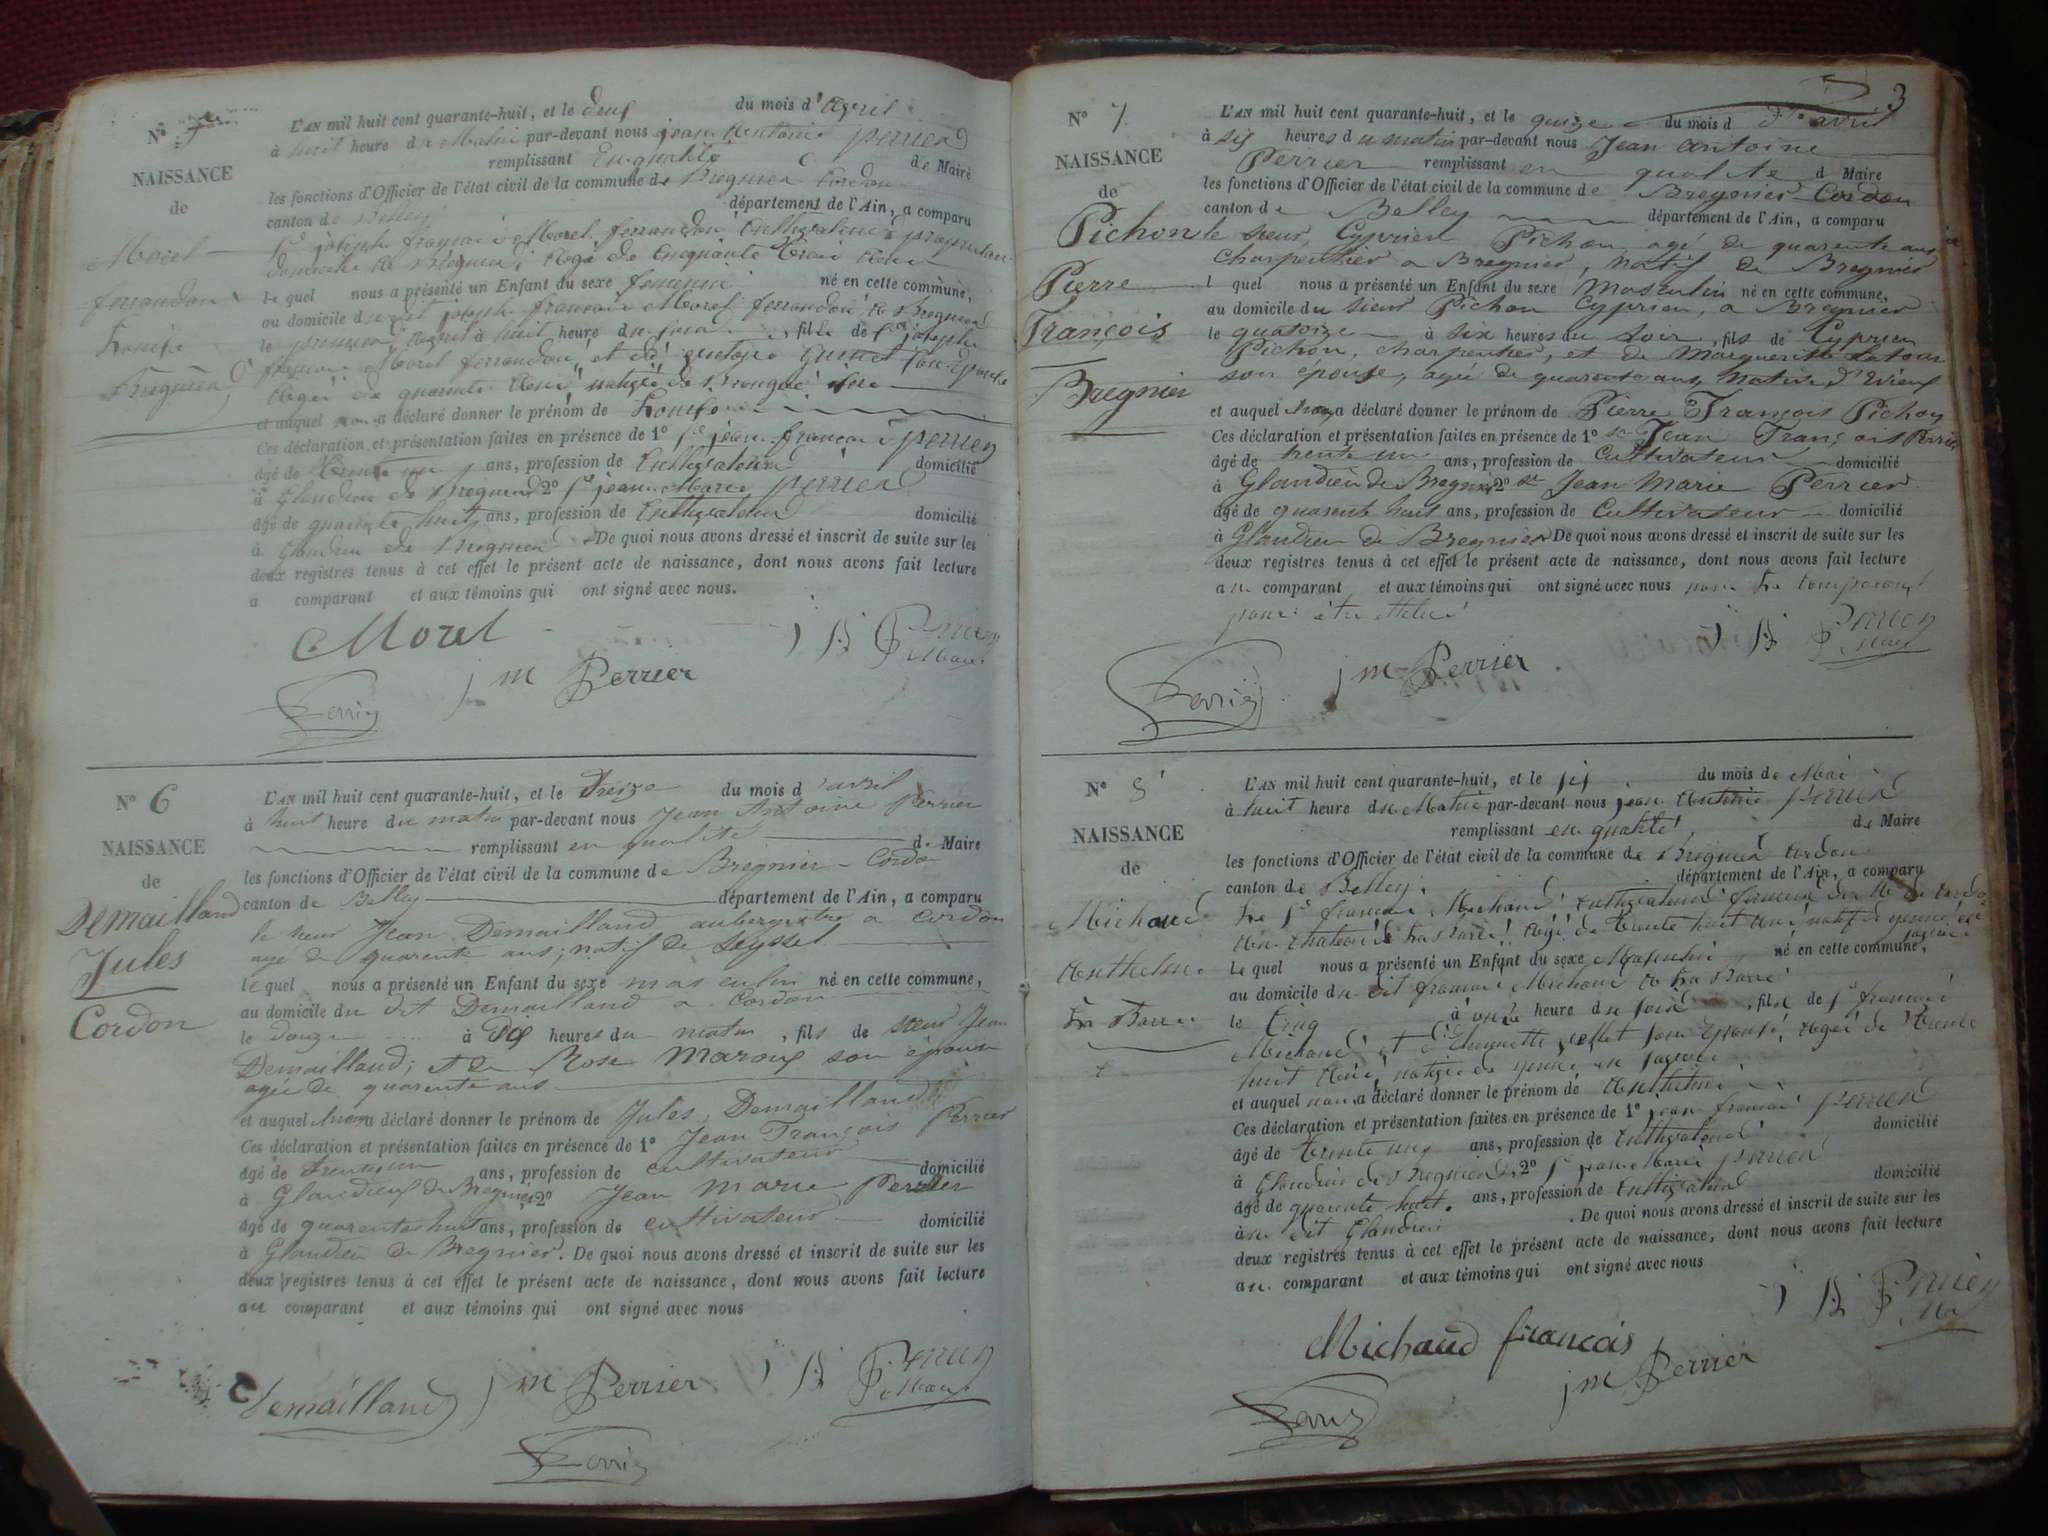 N° 5
NAISSANCE
de
Morel
ferrandon
Louise
Brégnier
L'AN mil huit cent quarante-huit, et le deux du mois d'Avril
à huit heure du Matin par-devant nous jean Antoine perrier
remplissant En qualité de Maire
les fonctions d'Officier de l'état civil de la commune de Bregnier Cordon
canton de Belley département de l'Ain, a comparu
joseph françois Morel ferrandon Cultivateur propriétaire
domicilié à Brégnier, Agé de Cinquante trois Ans
le quel nous a présenté un Enfant du sexe feminin né en cette commune,
au domicile du dit joseph françois Morel ferrandon à Bregnier
le premier Avril à huit heure du , fille de joseph
françois Morel ferrandon et de son Epouse
Agée de quarante Ans native de
et auquel nous a déclaré donner le prénom de Louise
Ces déclaration et présentation faites en présence de 1° Sr jean françois perrier
âgé de trente un ans, profession de Cultivateur domicilié
à Glandieu de Bregnier 2° Sr jean Marie perrier
âgé de quarante huit ans, profession de Cultivateur domicilié
à Glandieu de Bregnier De quoi nous avons dressé et inscrit de suite sur les
deux registres tenus à cet effet le présent acte de naissance, dont nous avons fait lecture
a comparant et aux témoins qui ont signé avec nous.
Morel
J A Perrier
Maire
j m Perrier
Perrier
N° 6
NAISSANCE
de
Demailland
Jules
Cordon
L'AN mil huit cent quarante-huit, et le treize du mois d'avril
à huit heure du matin par-devant nous Jean Antoine Perrier
remplissant en qualité de Maire
les fonctions d'Officier de l'état civil de la commune de Brégnier-Cordon
canton de Belley département de l'Ain, a comparu
le sieur Jean Demailland aubergiste a Cordon
agé de quarente ans, natif de Seyssel
le quel nous a présenté un Enfant du sexe masculin né en cette commune,
au domicile du dit Demailland a Cordon
le douze à dix heures du matin, fils de sieur Jean
Demailland; et de Rose Maroux son épouse
agée de quarente ans
et auquel nous a déclaré donner le prénom de Jules, Demailland
Ces déclaration et présentation faites en présence de 1° Jean François Perrier
âgé de trente un ans, profession de cultivateur domicilié
à Glandieux de Bregnier 2° Jean Marie Perrier
âgé de quarente huit ans, profession de cultivateur domicilié
à Glandieu de Bregnier. De quoi nous avons dressé et inscrit de suite sur les
deux registres tenus à cet effet le présent acte de naissance, dont nous avons fait lecture
au comparant et aux témoins qui ont signé avec nous
Demailland j m Perrier J A Perrier
Maire
Perrier
3
N° 7
NAISSANCE
de
Pichon
Pierre
François
Bregnier
L'AN mil huit cent quarante-huit, et le quinze du mois d'avril
à six heures du matin par-devant nous Jean Antoine
Perrier remplissant en qualité d Maire
les fonctions d'Officier de l'état civil de la commune de Bregnier-Cordon
canton de Belley département de l'Ain, a comparu
le sieur, Cyprien Pichon, agé de quarente ans
charpentier a Bregnier, natif de Bregnier
l quel nous a présenté un Enfant du sexe Masculin né en cette commune,
au domicile du sieur Pichon Cyprien, a Bregnier
le quatorze à six heures du soir, fils de Cyprien
Pichon, charpentier, et de Marguerite Latour
son épouse, agée de quarente ans, native d'
et auquel nous a déclaré donner le prénom de Pierre François Pichon
Ces déclaration et présentation faites en présence de 1° sr Jean François Perrier
âgé de trente un ans, profession de Cultivateur domicilié
à Glandieu de Bregnier 2° sr Jean Marie Perrier
âgé de quarente huit ans, profession de Cultivateur domicilié
à Glandieu de Bregnier De quoi nous avons dressé et inscrit de suite sur les
deux registres tenus à cet effet le présent acte de naissance, dont nous avons fait lecture
au comparant et aux témoins qui ont signé avec nous non le comparant
pour être
J A Perrier
Maire
j m Perrier
Perrier
N° 8
NAISSANCE
de
Michaud
Anthelme
La Barre
L'AN mil huit cent quarante-huit, et le six du mois de Mai
à huit heure du Matin par-devant nous jean Antoine perrier
remplissant en qualité de Maire
les fonctions d'Officier de l'état civil de la commune de Bregnier Cordon
canton de Belley. département de l'Ain, a comparu
Le Sr françois Michaud Cultivateur
Agé de trente huit Ans natif de yenne en
Savoie
Le quel nous a présenté un Enfant du sexe Masculin né en cette commune,
au domicile du dit françois Michaud à La Barre
le Cinq à onze heure du soir, fils de Sr françois
Michaud et d' son Epouse, Agée de trente
huit Ans, native de yenne en savoie
et auquel nous a déclaré donner le prénom de Anthelme
Ces déclaration et présentation faites en présence de 1° jean françois perrier
âgé de trente un ans, profession de Cultivateur domicilié
à Glandieu de Bregnier, 2° Sr jean Marie perrier
âgé de quarante huit. ans, profession de Cultivateur domicilié
à au dit Glandieu. De quoi nous avons dressé et inscrit de suite sur les
deux registres tenus à cet effet le présent acte de naissance, dont nous avons fait lecture
au comparant et aux témoins qui ont signé avec nous
J A Perrier
Maire
Michaud françois
j m Perrier
Perrier